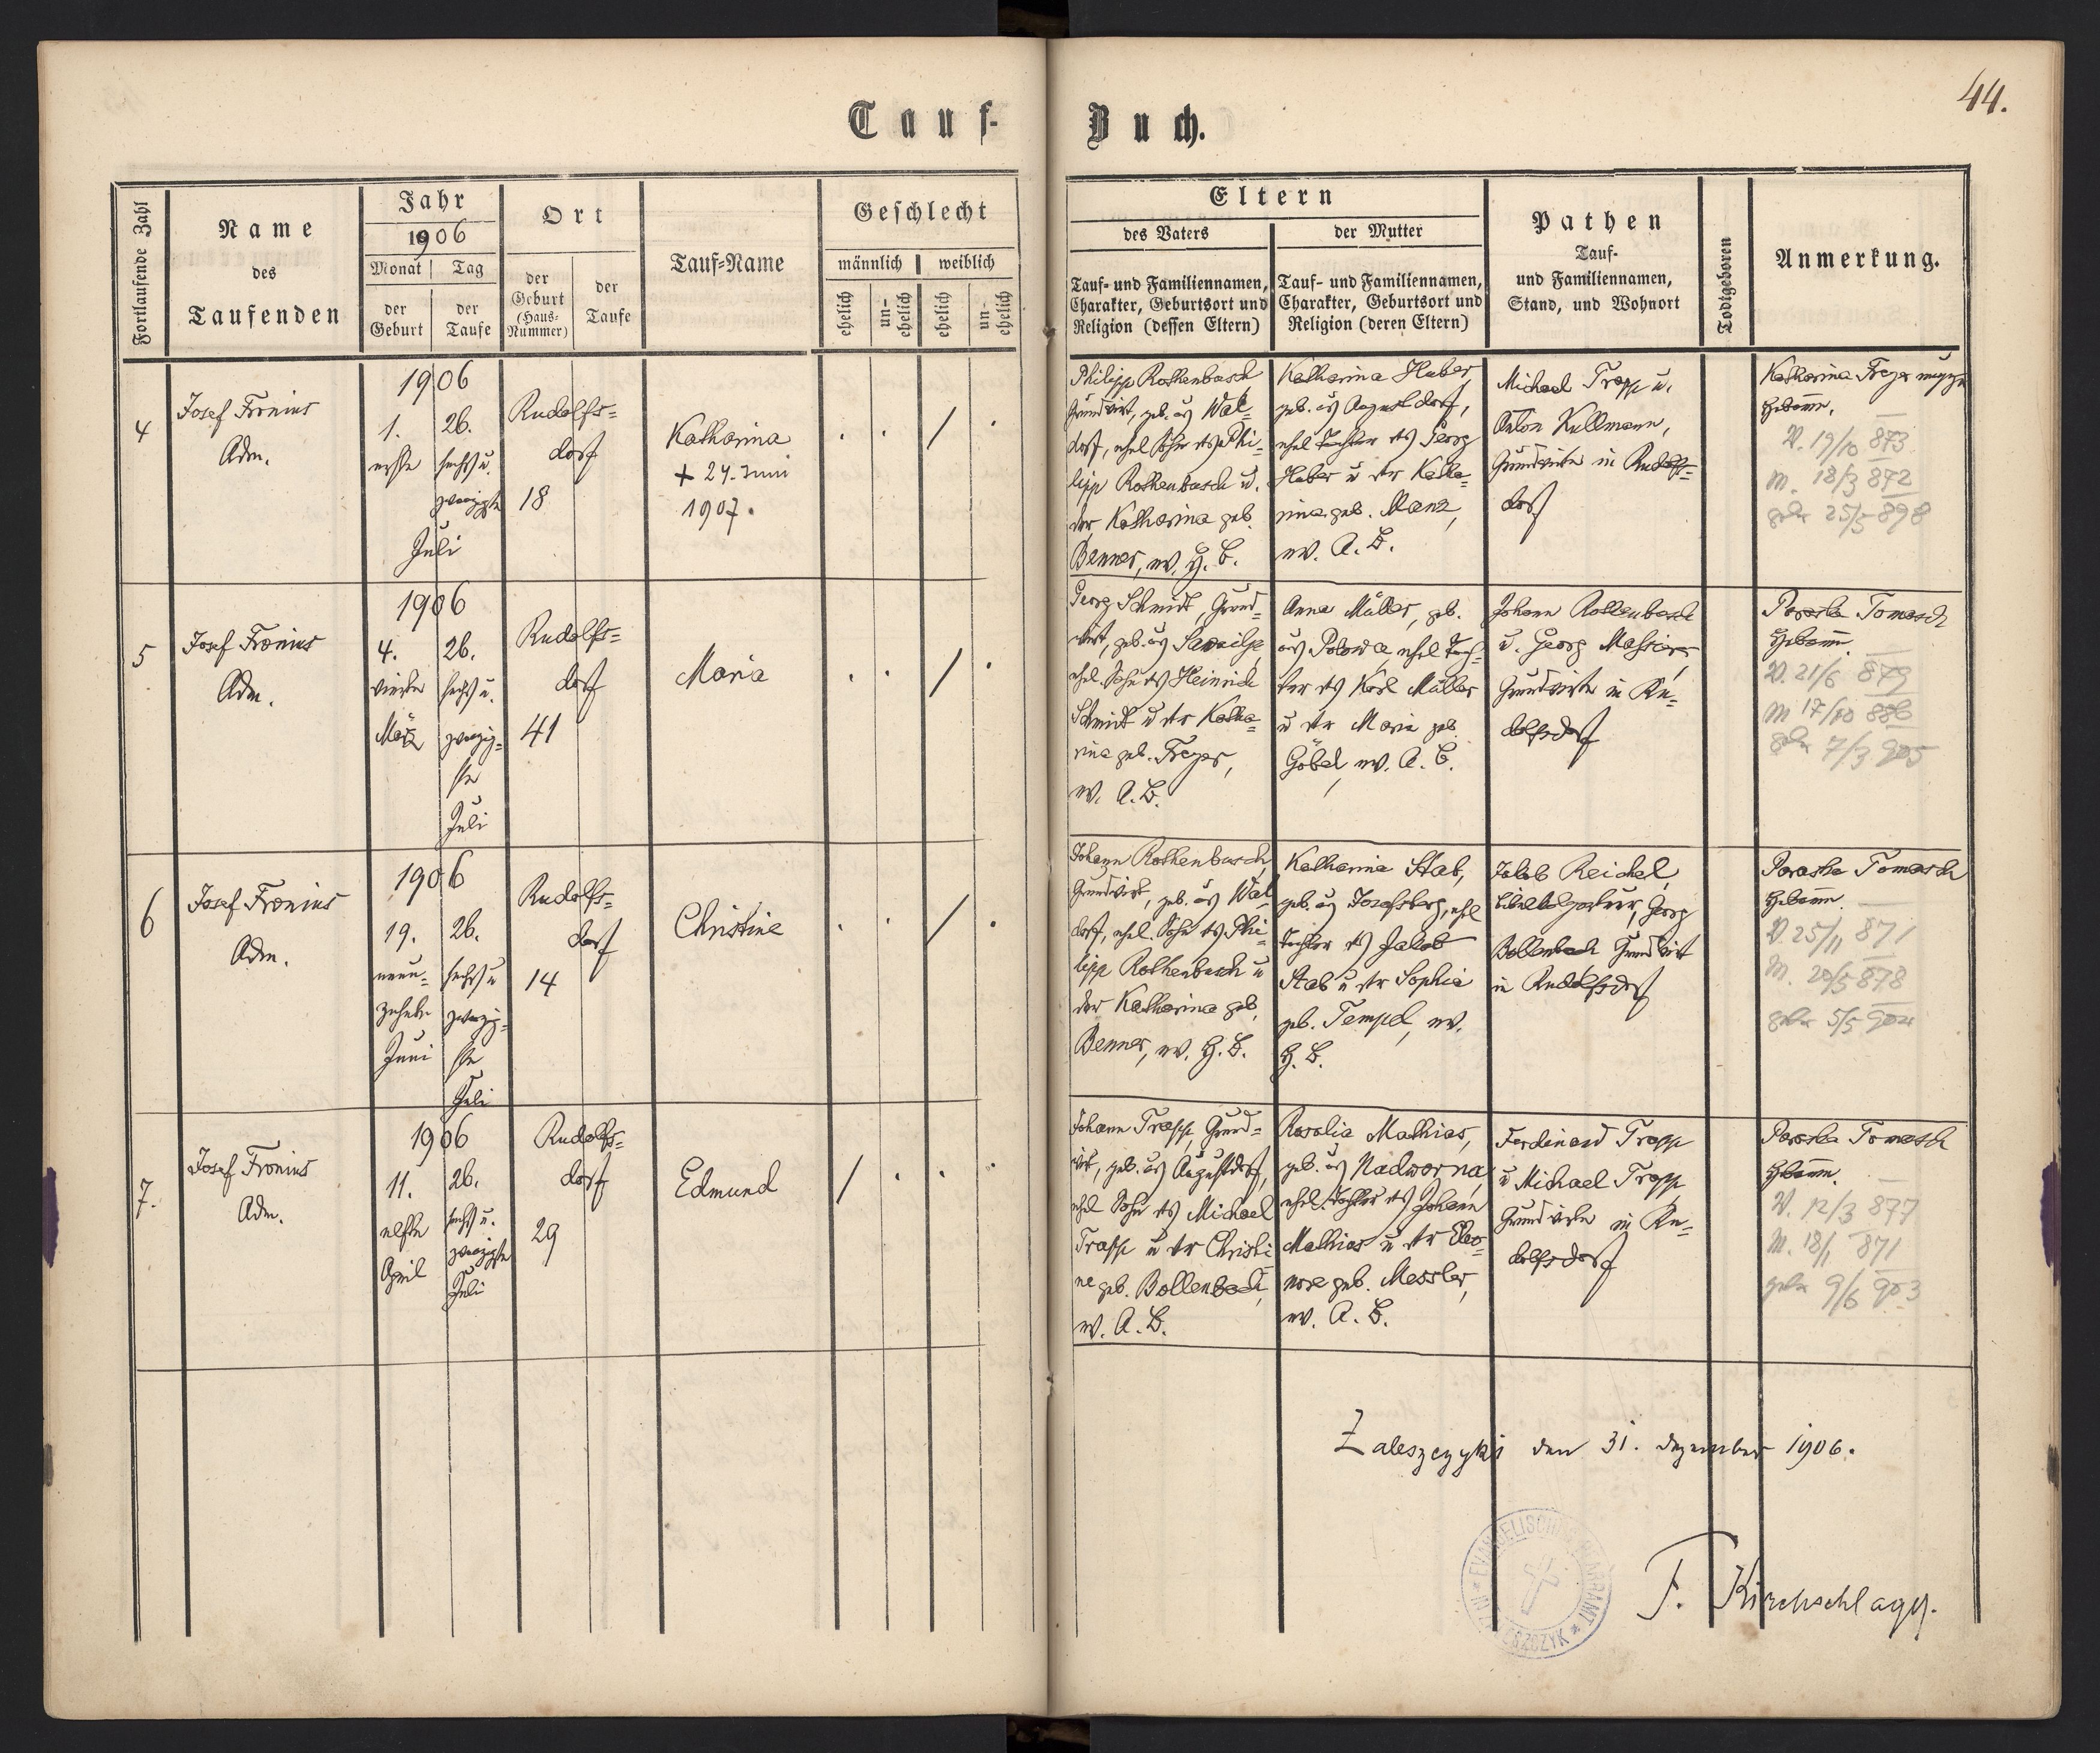 44.
Tauf-Buch.
Fortlaufende Zahl
Name
des
Taufenden
Jahr
1906
Monat
Tag
der
Geburt
der
Taufe
Ort
der
Geburt
(Haus-
Nummer)
der
Taufe
Tauf-Name
Geschlecht
männlich
weiblich
ehelich
un-
ehelich
ehelich
un-
ehelich
Eltern
des Vaters
Tauf- und Familiennamen,
Charakter, Geburtsort und
Religion (dessen Eltern)
der Mutter
Tauf- und Familiennamen,
Charakter, Geburtsort und
Religion (deren Eltern)
Pathen
Tauf-
und Familiennamen,
Stand, und Wohnort
Todtgeboren
Anmerkung.
4
Josef Fronius
Adm.
1906
1.
erste
26.
sechs u.
zwanzigste
Juli
Rudolfs=
dorf
18
Katharina
+ 24. Juni
1907.
. . / .
Philipp Rothenbusch
Grundwirt, geb. aus Wal-
dorf, ehel. Sohn des Phi-
lipp Rothenbusch u.
der Katharina geb.
Benner, ev. H. B.
Katharina Huber,
geb. aus Augustdorf,
ehel. Tochter des Georg
Huber u. der Katha-
rina geb. Manz,
ev. A. B.
Michael Trapp u.
Anton Kullmann,
Grundwirte in Rudolfs=
dorf
Katharina Freyer
Hebamme.
V. 19/10 873
M. 18/3 872
getr 25/5 898
5
Josef Fronius
Adm.
1906
4.
vierte
März
26.
sechs u.
zwanzig=
ste
Juli
Rudolfs=
dorf
41
Maria
. . / .
Georg Schmidt, Grund-
wirt, geb. aus
ehel. Sohn des Heinrich
Schmidt u. der Katha-
rina geb. Freyer,
ev. A. B.
Anna Müller, geb.
aus Polowce, ehel. Toch-
ter des Karl Müller
u. der Maria geb.
Göbel, ev. A. B.
Johann Rothenbusch
u. Georg Mathias
Grundwirte in Ru-
dolfsdorf
Paraska Tomasch
Hebamme.
V. 21/6 879
M 17/10 886
getr 7/3 905
6
Josef Fronius
Adm.
1906
19.
neun-
zehnte
Juni
26.
sechs u
zwanzig-
ste
Juli
Rudolfs=
dorf
14
Christine
. / .
Johann Rothenbusch,
Grundwirt, geb. aus Wal-
dorf, ehel. Sohn des Phi-
lipp Rothenbusch u
der Katharina geb.
Benner, ev. H. B.
Katharina Stab,
geb. aus Josefsberg, ehel.
Tochter des Jakob
Stab u. der Sophia
geb. Tempel, ev.
H. B.
Jakob Reichel,
Georg
Bollenbach Grundwirt
in Rudolfsdorf
Paraska Tomasch
Hebamme.
V. 25/11 871
M. 20/5 878
getr 5/5
7.
Josef Fronius
Adm.
1906
11.
elfte
April
26.
sechs u.
zwanzigste
Juli
Rudolfs=
dorf
29
Edmund
/ . . .
Johann Trapp, Grund=
wirt, geb. aus Augustdorf,
ehel. Sohn des Michael
Trapp u. der Christi
ne geb. Bollenbach,
ev. A. B.
Rosalia Mathias,
geb. aus Nadworna,
ehel. Tochter des Johann
Mathias u. der Eleo-
nore geb. Messler,
ev. A. B.
Ferdinand Trapp
u Michael Trapp,
Grundwirte in Ru=
dolfsdorf
Paraska Tomasch
Hebamme.
V. 12/3 877
M. 18/1 871
getr 9/6 903
Zaleszczyki den 31. Dezember 1906.
F. Kirchschlager.
EVANGELISCHES PFARRAMT